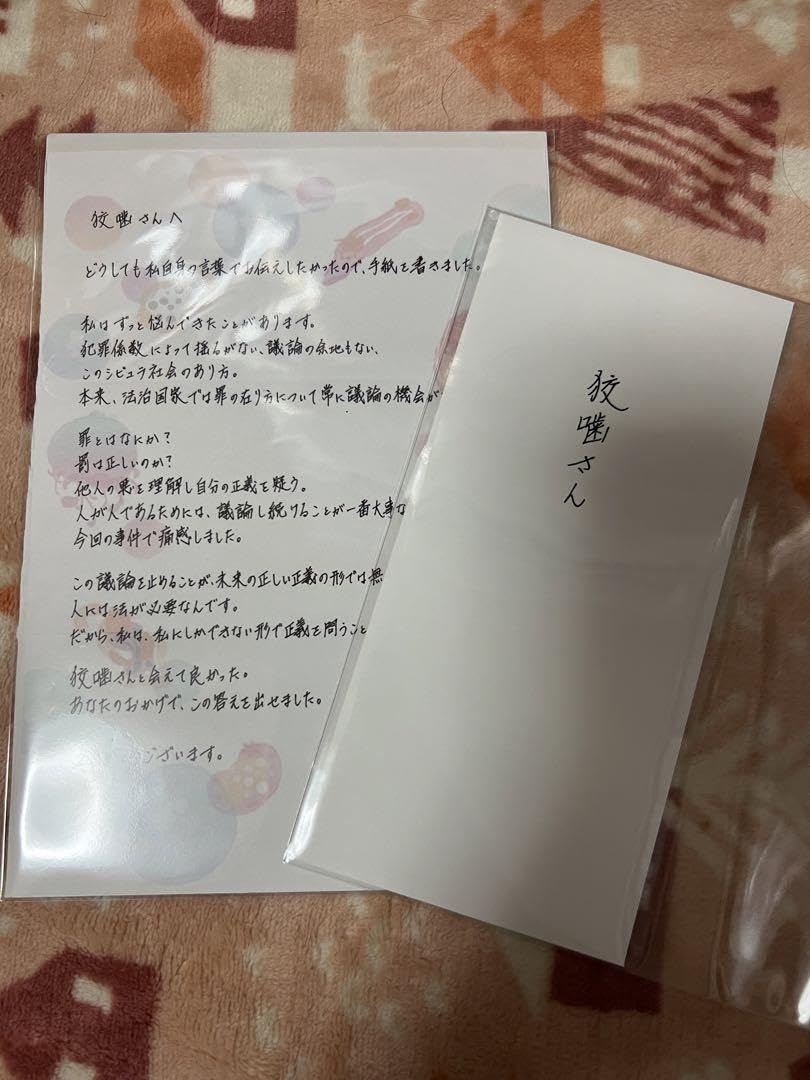 狡噛さんへ
どうしても私自身の言葉でお伝えしたかったので、手紙を書きました。
私はずっと悩んできたことがあります。
犯罪係数によって揺るがない、議論の余地もない、
このシビュラ社会のあり方。
本来、法治国家では罪の在り方について常に議論の機会が
罪とはなにか？
罰は正しいのか？
他人の悪を理解し自分の正義を疑う。
人が人であるためには、議論し続けることが一番大事な
今回の事件で痛感しました。
この議論を止めることが、未来の正しい正義の形では無
人には法が必要なんです。
だから、私は、私にしかできない形で正義を問うこと
狡噛さんと会えて良かった。
あなたのおかげで、この答えを出せました。
ございます。
狡噛さん